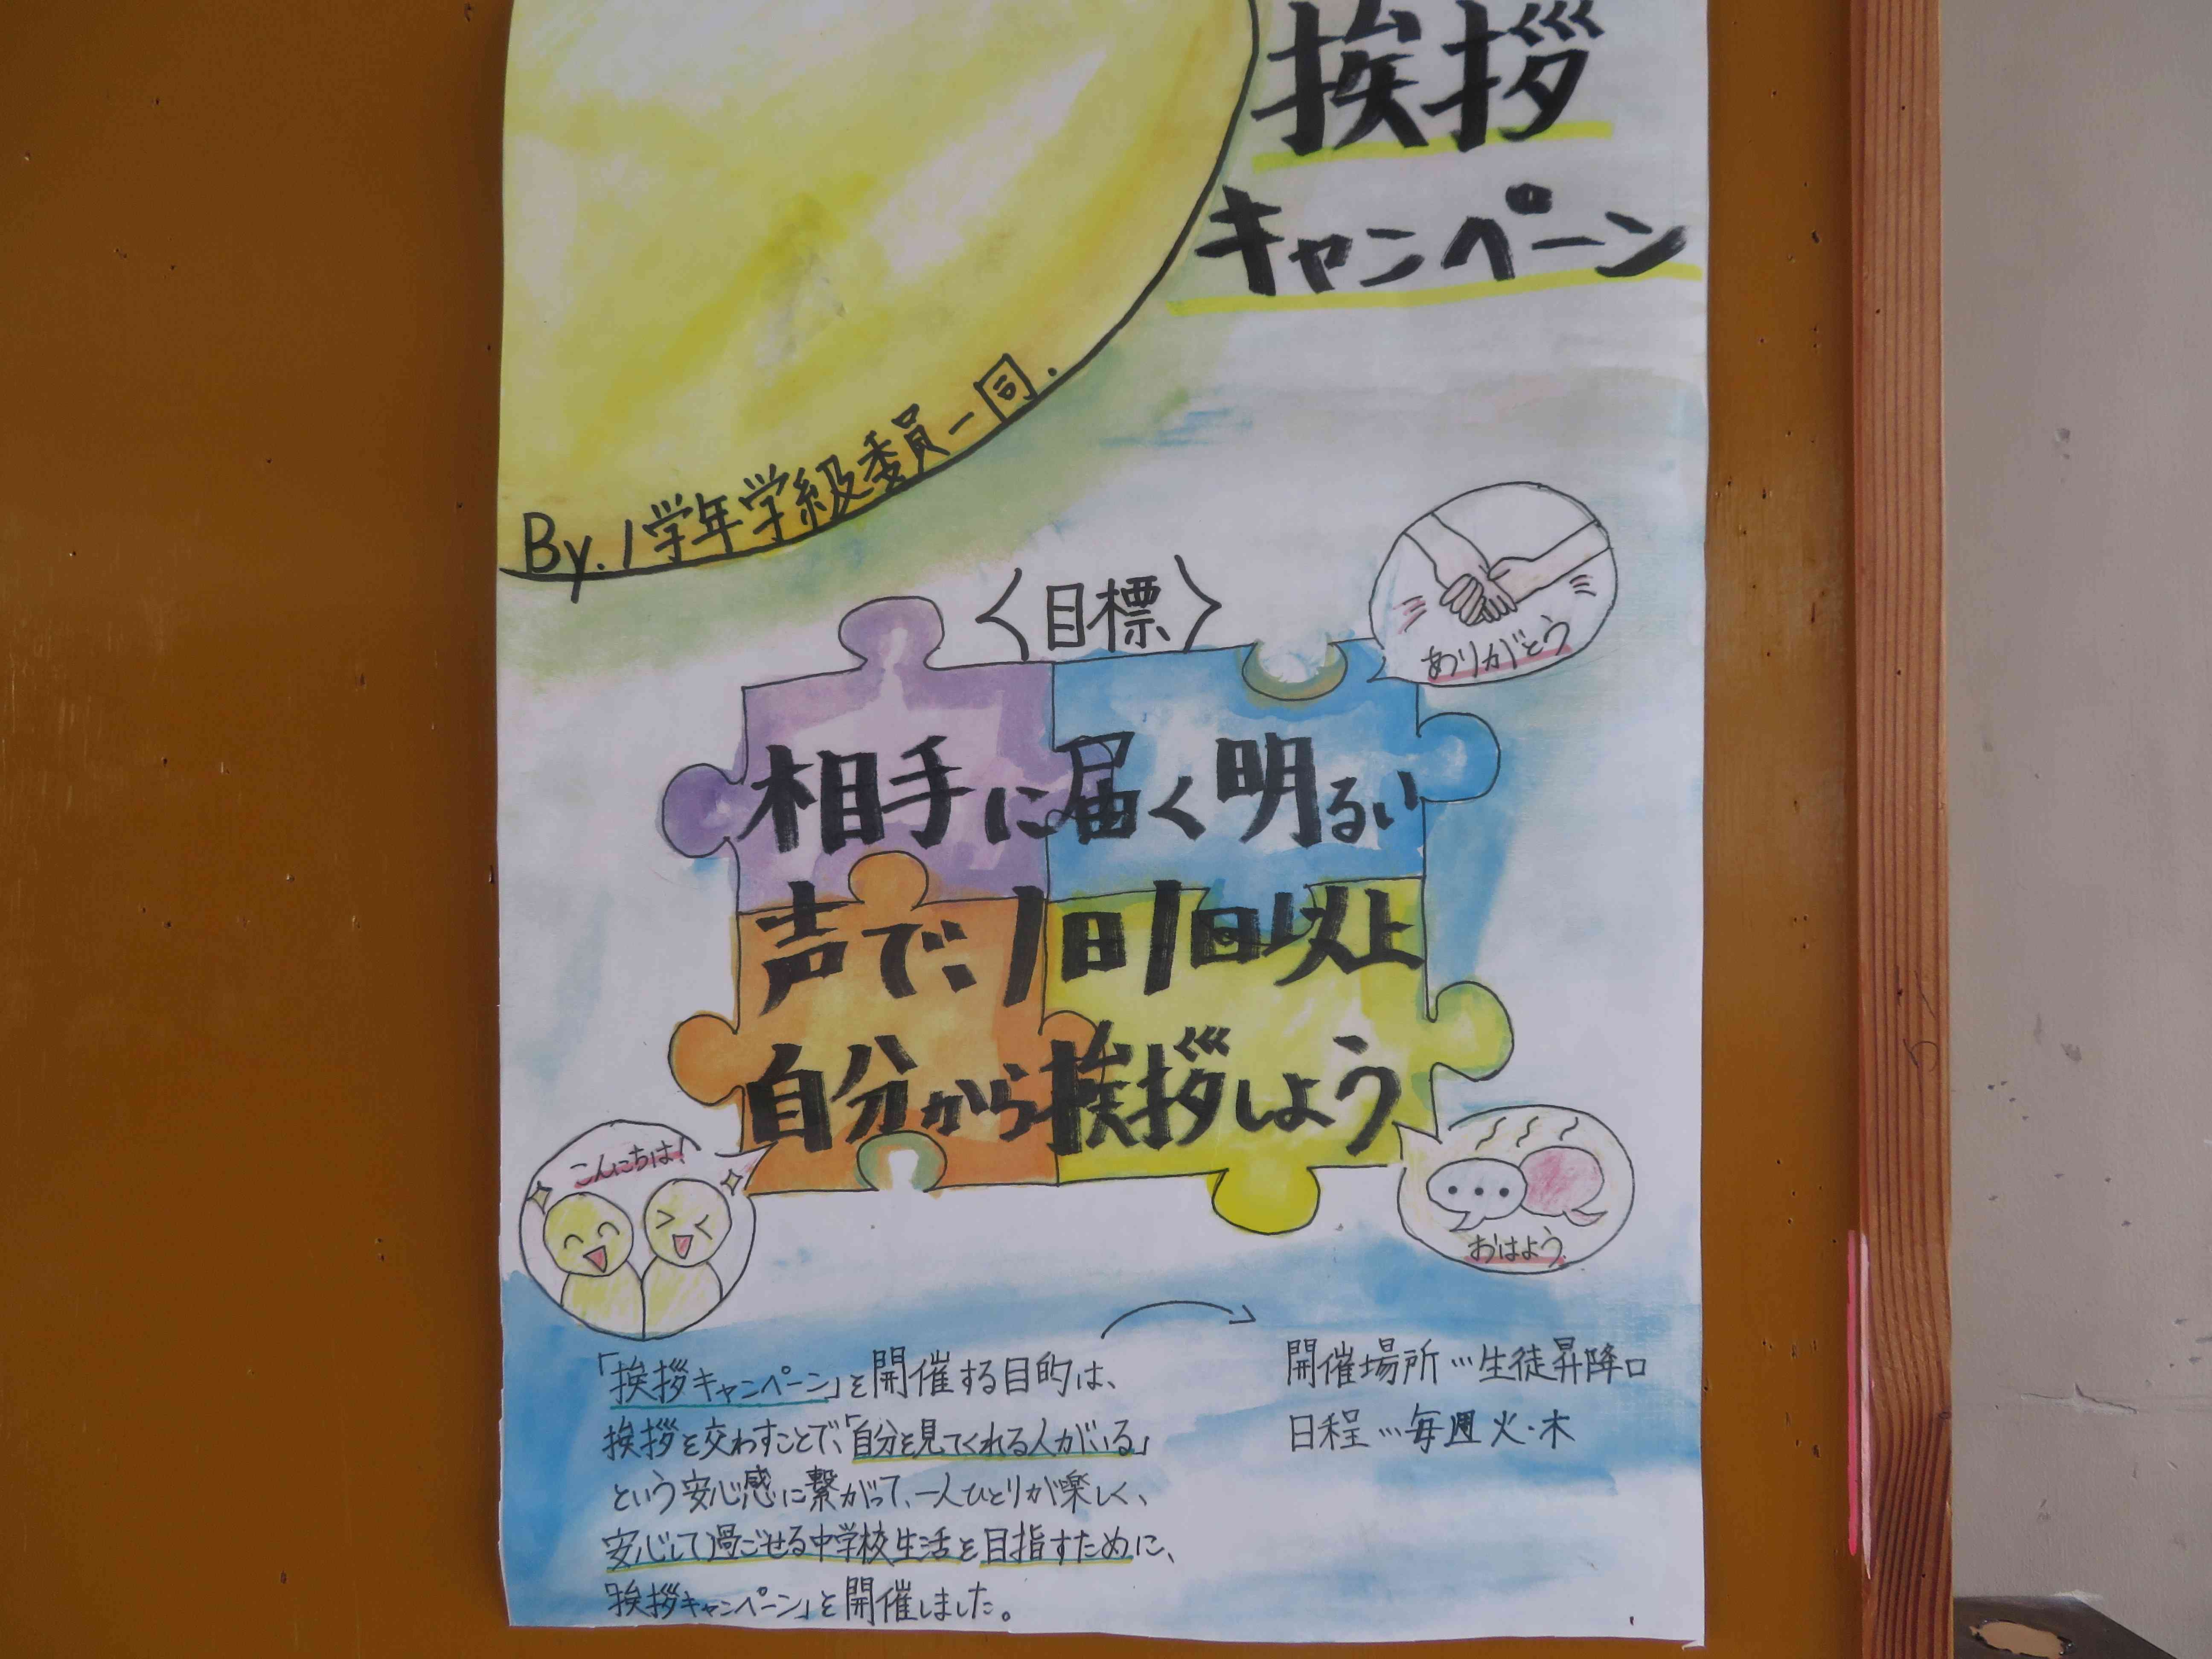 挨拶
キャンペーン
By.1学年学級委員一同.
〈目標〉
ありがとう
相手に届く明るい
声で1日1回以上
自分から挨拶しよう
こんにちは!
おはよう
「挨拶キャンペーン」を開催する目的は、
挨拶を交わすことで、「自分を見てくれる人がいる」
という安心感に繋がって、一人ひとりが楽しく、
安心して過ごせる中学校生活を目指すために、
「挨拶キャンペーン」を開催しました。
開催場所…生徒昇降口
日程…毎週火・木